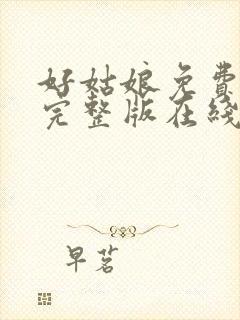 好姑娘免费
完整版在线
早茗